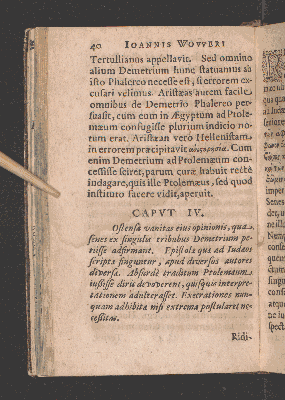 40 IOANNIS WOVVERI
Tertullianus appellavit. Sed omnino
alium Demetrium hunc statuamus ab
isto Phalereo necesse est, si errorem ex-
cusari velimus. Aristæas autem facile
omnibus de Demetrio Phalereo per-
suasit, cum eum in Ægyptum ad Ptole-
mæum confugisse plurium indicio no-
tum erat. Aristæan vero Hellenistam
in errorem præcipitavit Cum
enim Demetrium ad Ptolemæum con-
cessisse sciret, parum curæ habuit recte
indagare, quis ille Ptolemæus, sed quod
instituto facere vidit, aperuit.
CAPVT IV.
Ostensa vanitas eius opinionis, qua
senes ex singulis tribubus Demetrium pe-
tiisse adfirmant. Epistolæ quæ ad Iudæos
scriptæ finguntur, apud diversos autores
diversæ. Absurde traditum Ptolemæum
iussisse diris devoveri, quisquis interpre-
tationem adulterasset. Execrationes nun-
quam adhibitæ nisi extrema postularet ne-
cessitas.
Ridi-